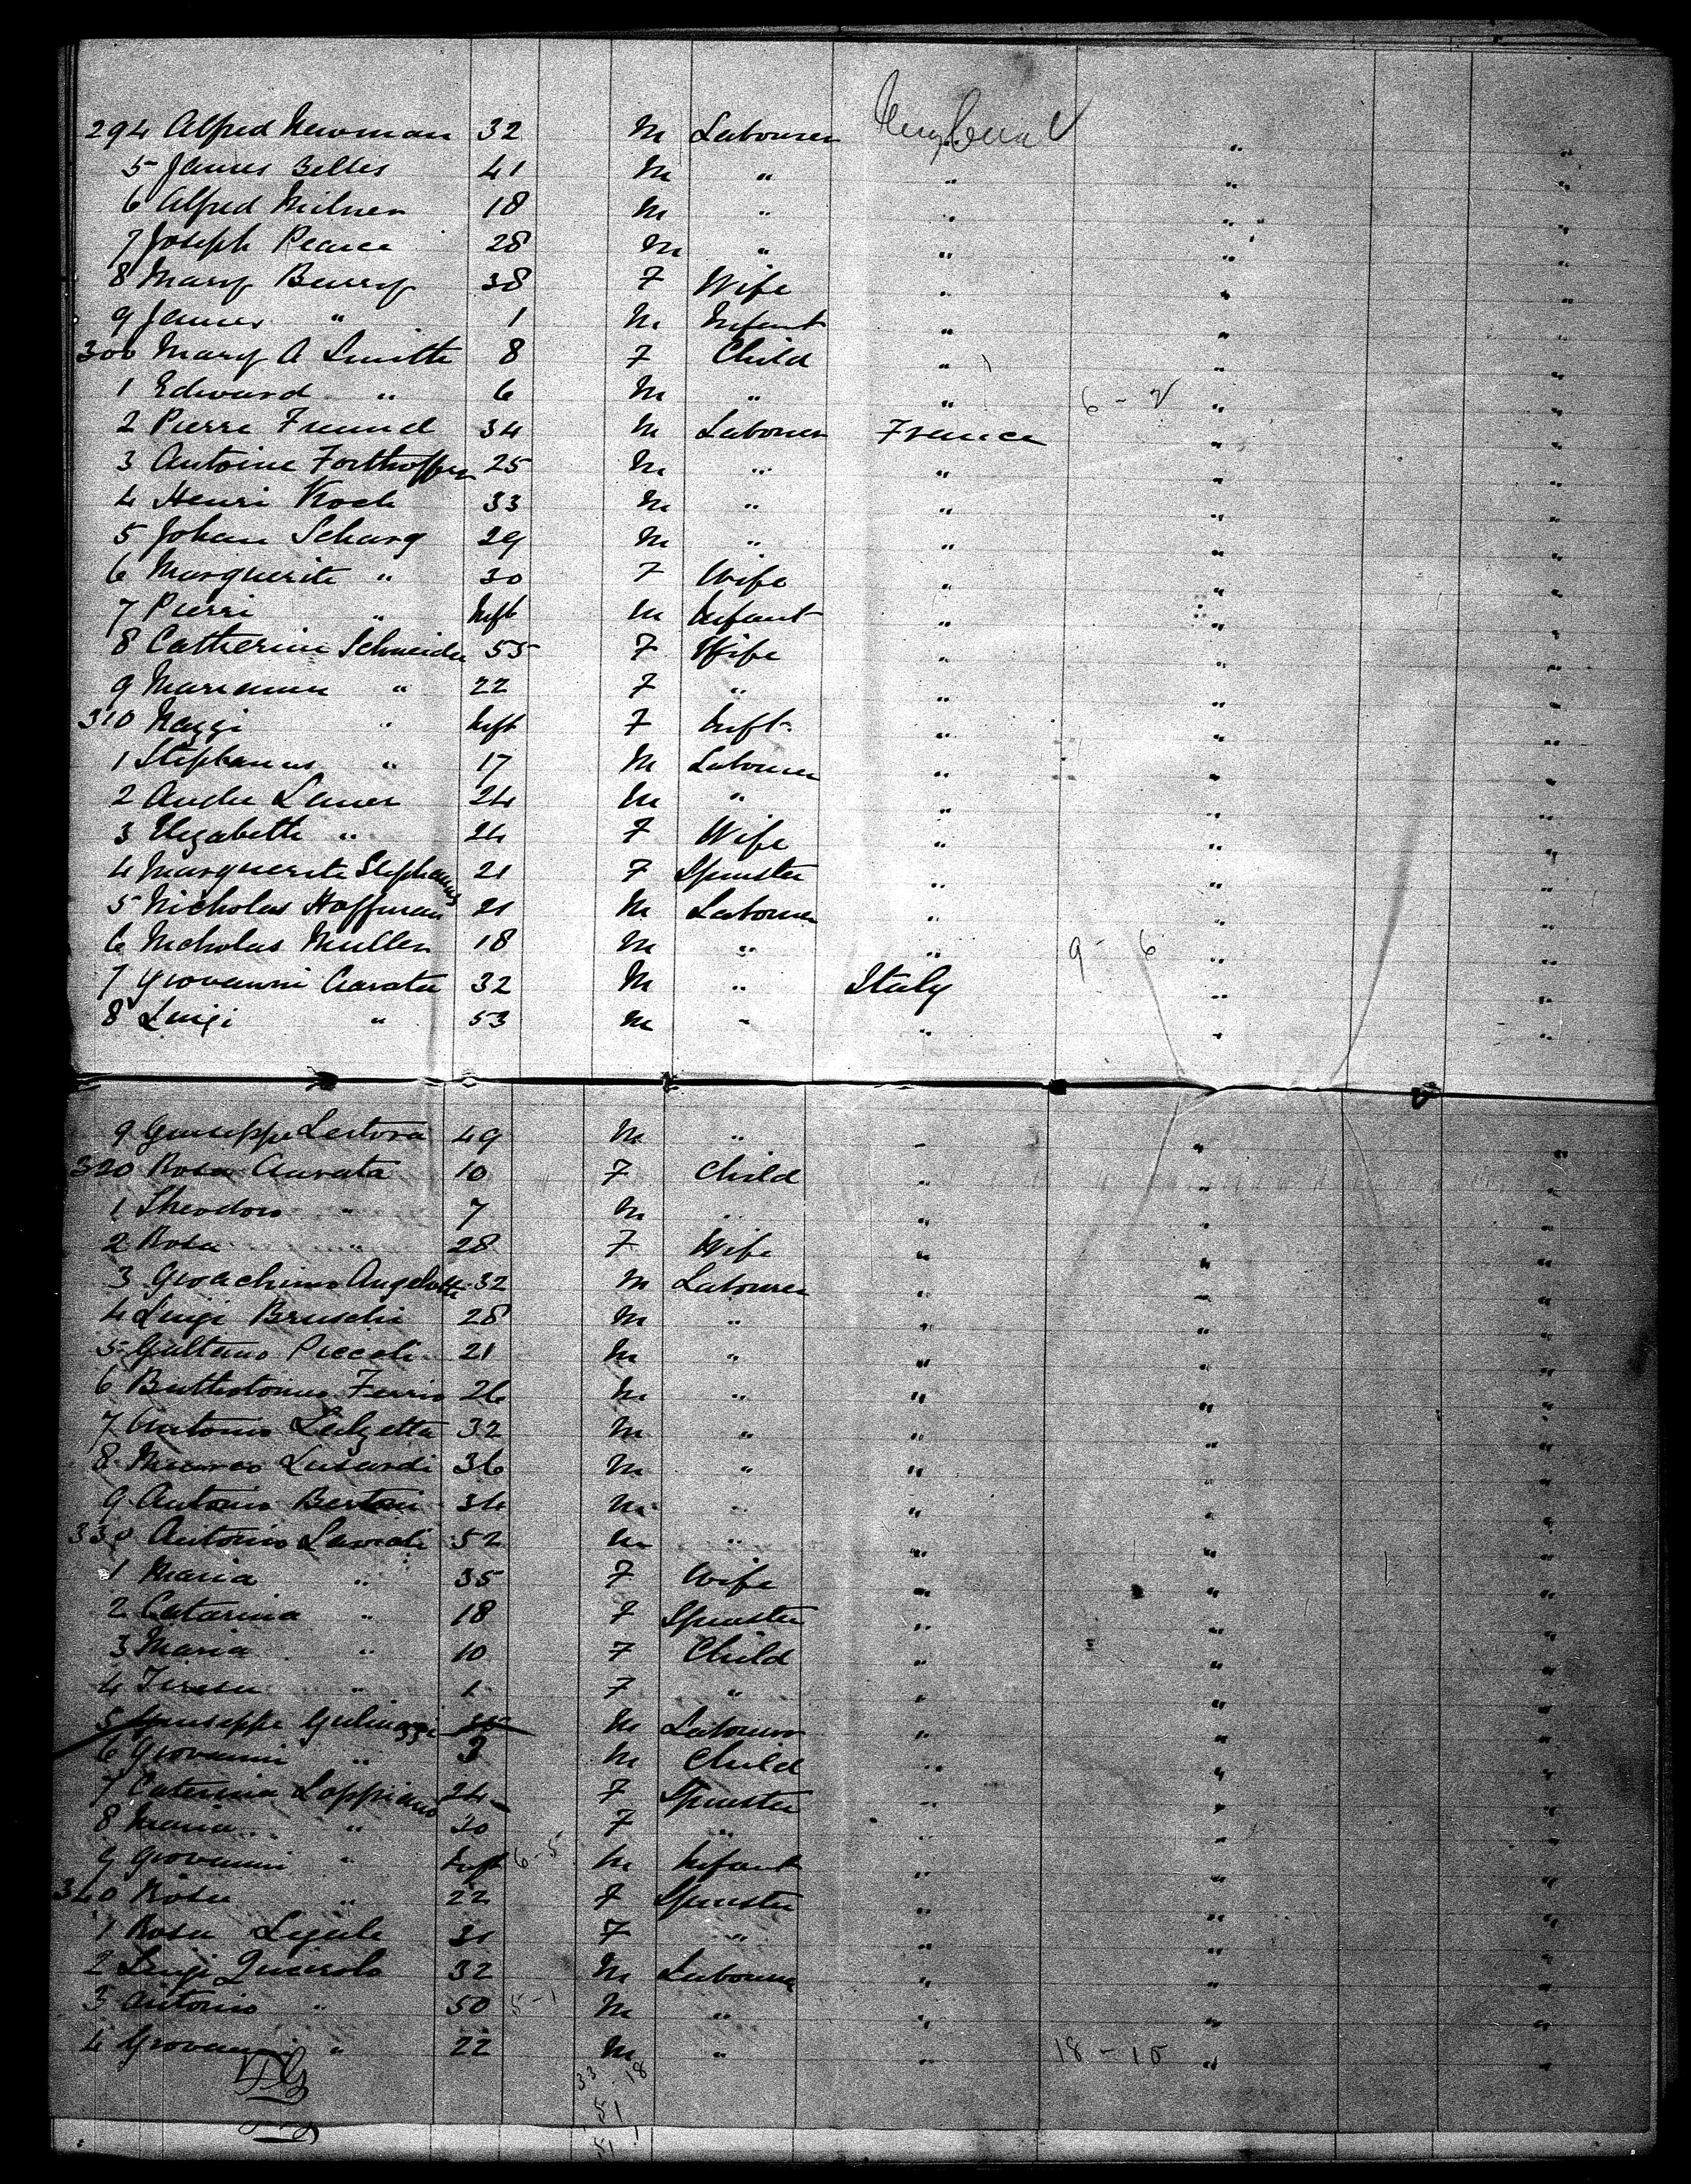 294 Alfred Newman 32 M Labourer England
5 James Belles 41 M " " " "
6 Alfred Milner 18 M " " " "
7 Joseph Pearce 28 M " " " "
8 Mary Barry 38 F Wife " " "
9 James " 1 M Infant " " "
300 Mary A Smith 8 F Child " " "
1 Edward " 6 M " " 6 - 2 " "
2 Pierre Freund 34 M Labourer France " "
3 Antoine Forthoffer 25 M " " " "
4 Henri Koch 33 M " " " "
5 Johan Scharg 29 M " " " "
6 Marguerite " 30 F Wife " " "
7 Pierri " Inft M Infant " " "
8 Catherine Schneider 55 F Wife " " "
9 Mariann " 22 F " " " "
310 Nazzi " Inft F Inft. " " "
1 Stephanus " 17 M Labourer " " "
2 Andre Lauer 24 M " " " "
3 Elizabeth " 24 F Wife " " "
4 Marguerite Stephanus 21 F Spinster " " "
5 Nicholas Hoffman 21 M Labourer " " "
6 Nicholas Muller 18 M " " 9 - 6 " "
7 Giovanni Aavata 32 M " Italy " "
8 Luigi " 53 M " " " "
9 Giuseppe Lertora 49 M " " " "
320 Rosa Aavata 10 F Child " " "
1 Theodoro " 7 M " " " "
2 Rosa " 28 F Wife " " "
3 Gioachimo Angelotti 32 M Labourer " " "
4 Luigi Bruschi 28 M " " " "
5 Piccoli 21 M " " " "
6 Ferris 26 M " " " "
7 Antonio 32 M " " " "
8 Marco Lusardi 36 M " " " "
9 Antonio Bertoni 34 M " " " "
330 Antonio 52 M " " " "
1 Maria " 35 F Wife " " "
2 Catarina " 18 F Spinster " " "
3 Maria " 10 F Child " " "
4 Teresa " 1 F " " " "
5 Giuseppe M Labourer " " "
6 Giovanni " 3 M Child " " "
7 Caterina Loppiano 24 F Spinster " " "
8 Maria " 30 F " " " "
9 Giovanni " Inft 6-5 M Infant " " "
340 Rosa " 22 F Spinster " " "
1 Rosa 31 F " " " "
2 Luigi Quierolo 32 M Labourer " " "
3 Antonio " 50 5-1 M " " " "
4 Giovanni " 22 M " " 18 - 10 " "
33 - 18
51
51 1